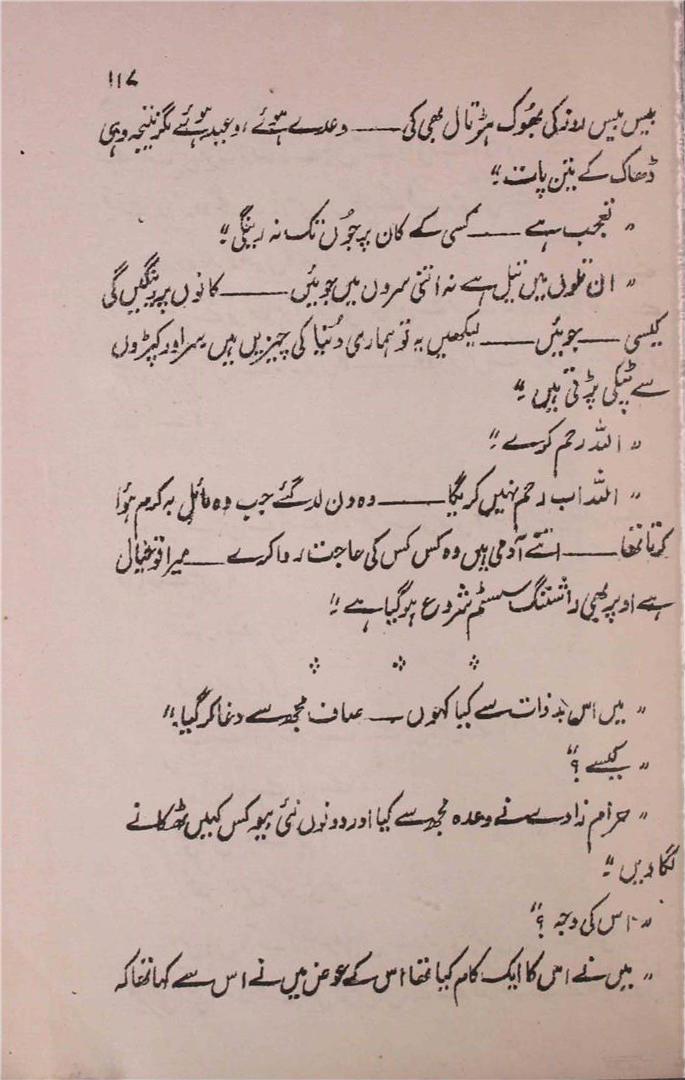 ۱۱۷
بیس بیس روز کی بھُوک ہڑتال بھی کی —— وعدے ہوئے، وعید ہوئے مگر نتیجہ وہی
ڈھاک کے تین پات۔"
"تعجب ہے —— کسی کے کان پر جُوں تک نہ رینگی۔"
"ان تلوں میں تیل ہے نہ اتنی سروں میں جوئیں —— کانوں پر رینگیں گی
کیسی —— جوئیں —— لیکھیں یہ تو ہماری دُنیا کی چیزیں ہیں سر اور کپڑوں
سے ٹپکی پڑتی ہیں۔"
"اللہ رحم کرے۔"
"اللہ اب رحم نہیں کریگا —— وہ دن لد گئے جب وہ مائل بہ کرم ہوُا
کرتا تھا —— اتنے آدمی ہیں وہ کس کس کی حاجت روا کرے —— میرا تو خیال
ہے اوپر بھی راشننگ سسٹم شروع ہو گیا ہے۔"
"میں اس بدذات سے کیا کہوں —— صاف مجھ سے دغا کر گیا۔"
"کیسے؟"
"حرام زادے نے وعدہ مجھ سے کیا اور دونوں نئی بیوک کس کہیں ٹھکانے
لگا دیں۔"
"اس کی وجہ؟"
"میں نے اس کا ایک کام کیا تھا اس کے عوض میں نے اس سے کہا تھا کہ